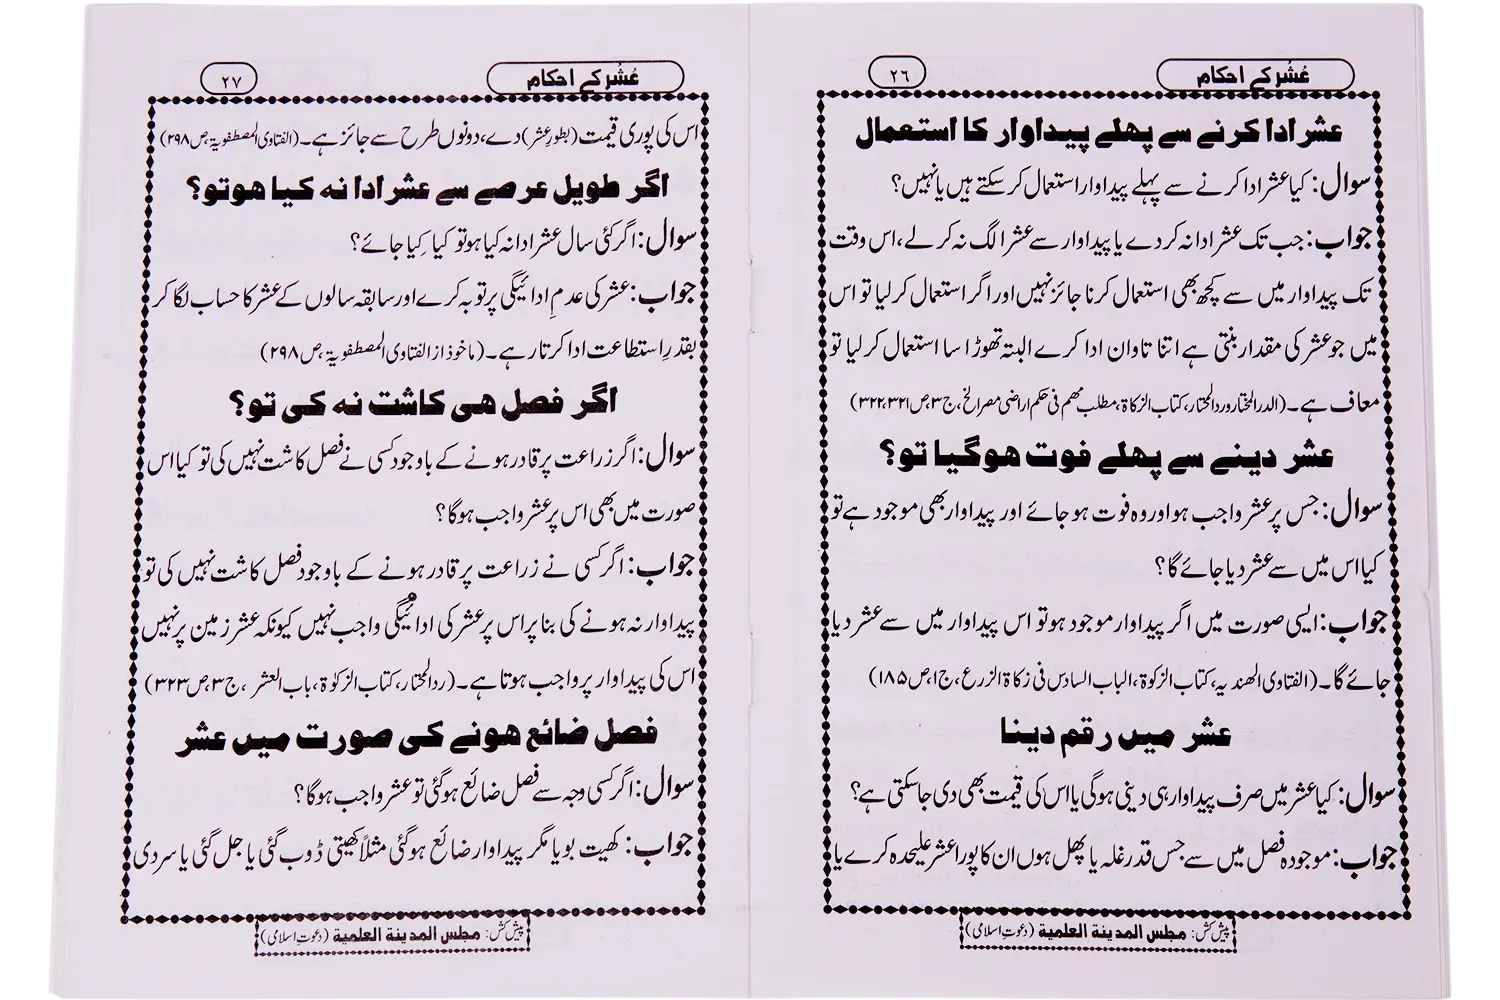 عُشر کے احکام
۲۶
عشر ادا کرنے سے پہلے پیداوار کا استعمال
سوال: کیا عشر ادا کرنے سے پہلے پیداوار استعمال کر سکتے ہیں یا نہیں؟
جواب: جب تک عشر ادا نہ کر دے یا پیداوار سے عشر الگ نہ کر لے، اس وقت
تک پیداوار میں سے کچھ بھی استعمال کرنا جائز نہیں اور اگر استعمال کر لیا تو اس
میں جو عشر کی مقدار بنتی ہے اتنا تاوان ادا کرے البتہ تھوڑا سا استعمال کر لیا تو
معاف ہے۔ (الدر المختار ورد المختار، کتاب الزکاۃ، مطلب مھم فی حکم اراضی مصر الخ، ج۳، ص۳۲۱،۳۲۲)
عشر دینے سے پہلے فوت ہوگیا تو؟
سوال: جس پر عشر واجب ہو اور وہ فوت ہو جائے اور پیداوار بھی موجود ہے تو
کیا اس میں سے عشر دیا جائے گا؟
جواب: ایسی صورت میں اگر پیداوار موجود ہو تو اس پیداوار میں سے عشر دیا
جائے گا۔ (الفتاوی الھندیہ، کتاب الزکوۃ، الباب السادس فی زکاۃ الزرع، ج۱، ص۱۸۵)
عشر میں رقم دینا
سوال: کیا عشر میں صرف پیداوار ہی دینی ہوگی یا اس کی قیمت بھی دی جاسکتی ہے؟
جواب: موجودہ فصل میں سے جس قدر غلہ یا پھل ہوں ان کا پورا عشر علیحدہ کرے یا
پیش کش: مجلس المدینۃ العلمیۃ (دعوتِ اسلامی)
عُشر کے احکام
۲۷
اس کی پوری قیمت (بطورِ عشر) دے، دونوں طرح سے جائز ہے۔ (الفتاوی المصطفویۃ، ص۲۹۸)
اگر طویل عرصے سے عشر ادا نہ کیا ہو تو؟
سوال: اگر کئی سال عشر ادا نہ کیا ہو تو کیا کِیا جائے؟
جواب: عشر کی عدمِ ادائیگی پر توبہ کرے اور سابقہ سالوں کے عشر کا حساب لگا کر
بقدرِ استطاعت ادا کرتا رہے۔ (ماخوذ از الفتاوی المصطفویۃ، ص۲۹۸)
اگر فصل ہی کاشت نہ کی تو؟
سوال: اگر زراعت پر قادر ہونے کے باوجود کسی نے فصل کاشت نہیں کی تو کیا اس
صورت میں بھی اس پر عشر واجب ہوگا؟
جواب: اگر کسی نے زراعت پر قادر ہونے کے باوجود فصل کاشت نہیں کی تو
پیداوار نہ ہونے کی بنا پر اس پر عشر کی ادائیگی واجب نہیں کیونکہ عشر زمین پر نہیں
اس کی پیداوار پر واجب ہوتا ہے۔ (رد المختار، کتاب الزکوۃ، باب العشر، ج۳، ص۳۲۳)
فصل ضائع ہونے کی صورت میں عشر
سوال: اگر کسی وجہ سے فصل ضائع ہوگئی تو عشر واجب ہوگا؟
جواب: کھیت بویا مگر پیداوار ضائع ہوگئی مثلاً کھیتی ڈوب گئی یا جل گئی یا سردی
پیش کش: مجلس المدینۃ العلمیۃ (دعوتِ اسلامی)